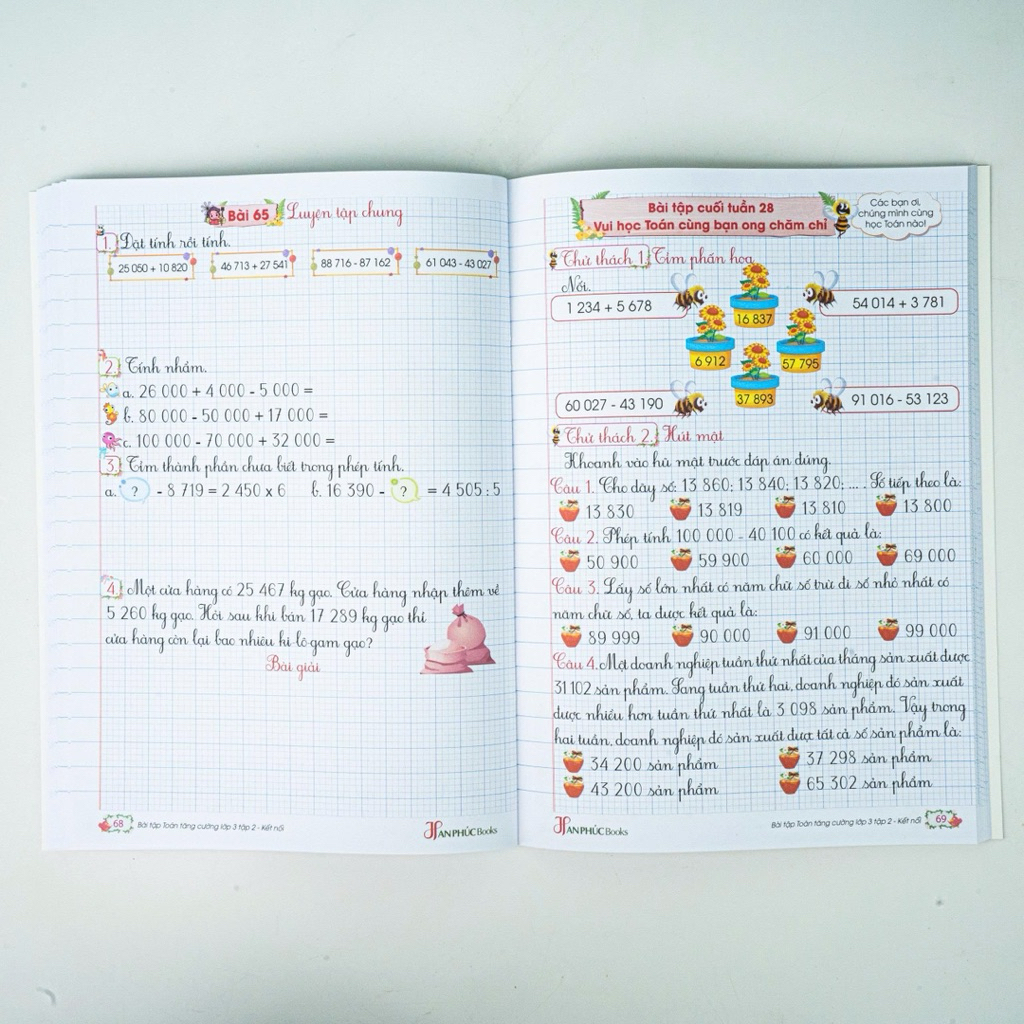 Bài 65 Luyện tập chung
1. Đặt tính rồi tính.
25 050 + 10 820 46 713 + 27 541 88 716 - 87 162 61 043 - 43 027
2. Tính nhẩm.
a. 26 000 + 4 000 - 5 000 =
b. 80 000 - 50 000 + 17 000 =
c. 100 000 - 70 000 + 32 000 =
3. Tìm thành phần chưa biết trong phép tính.
a. ? - 8 719 = 2 450 x 6 b. 16 390 - ? = 4 505 : 5
4. Một cửa hàng có 25 467 kg gạo. Cửa hàng nhập thêm về
5 260 kg gạo. Hỏi sau khi bán 17 289 kg gạo thì
cửa hàng còn lại bao nhiêu ki-lô-gam gạo?
Bài giải
68 Bài tập Toán tăng cường lớp 3 tập 2 - Kết nối
AN PHÚC Books
Bài tập cuối tuần 28
Vui học Toán cùng bạn ong chăm chỉ
Các bạn ơi,
chúng mình cùng
học Toán nào!
Thử thách 1. Tìm phấn hoa
Nối.
1 234 + 5 678 16 837 54 014 + 3 781
6 912 57 795
60 027 - 43 190 37 893 91 016 - 53 123
Thử thách 2. Hút mật
Khoanh vào hũ mật trước đáp án đúng.
Câu 1. Cho dãy số: 13 860; 13 840; 13 820; .... Số tiếp theo là:
13 830 13 819 13 810 13 800
Câu 2. Phép tính 100 000 - 40 100 có kết quả là:
50 900 59 900 60 000 69 000
Câu 3. Lấy số lớn nhất có năm chữ số trừ đi số nhỏ nhất có
năm chữ số, ta được kết quả là:
89 999 90 000 91 000 99 000
Câu 4. Một doanh nghiệp tuần thứ nhất của tháng sản xuất được
31 102 sản phẩm. Sang tuần thứ hai, doanh nghiệp đó sản xuất
được nhiều hơn tuần thứ nhất là 3 098 sản phẩm. Vậy trong
hai tuần, doanh nghiệp đó sản xuất được tất cả số sản phẩm là:
34 200 sản phẩm 37 298 sản phẩm
43 200 sản phẩm 65 302 sản phẩm
AN PHÚC Books
Bài tập Toán tăng cường lớp 3 tập 2 - Kết nối 69